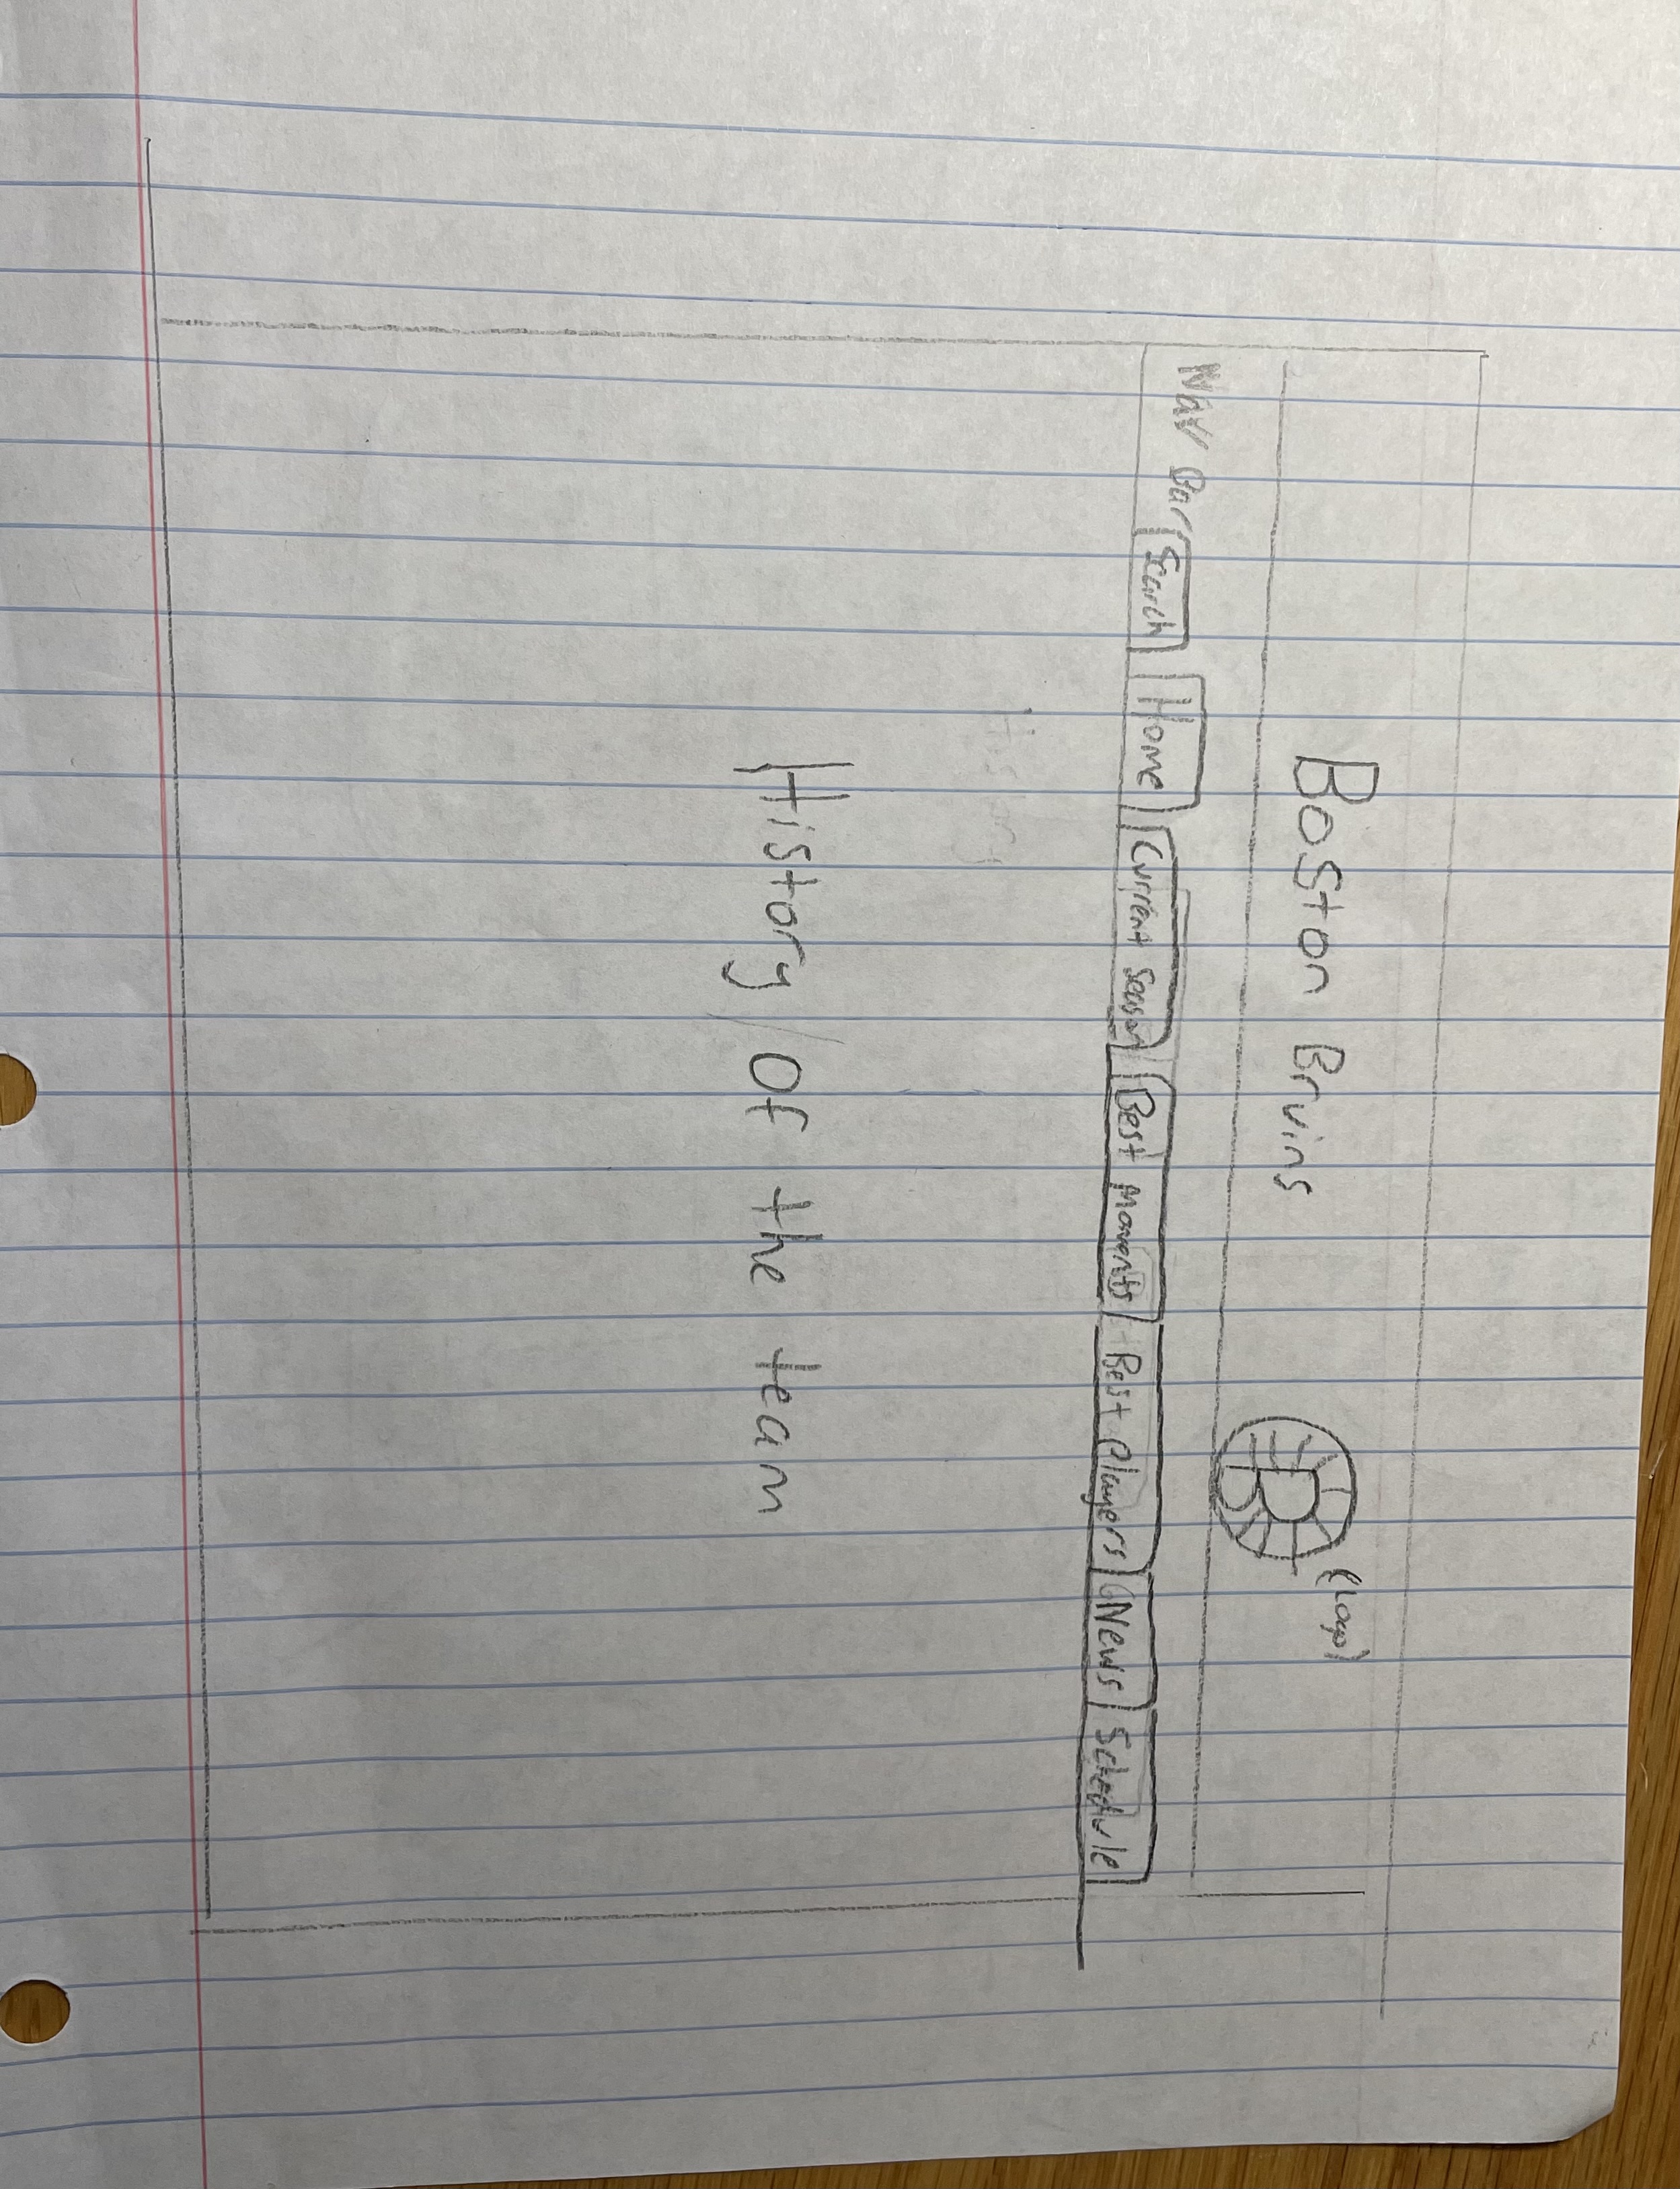 Boston Bruins
(Logo)
B
Nav Bar
Search Home Current Season Best Moments Best Players News Schedule
History Of the team